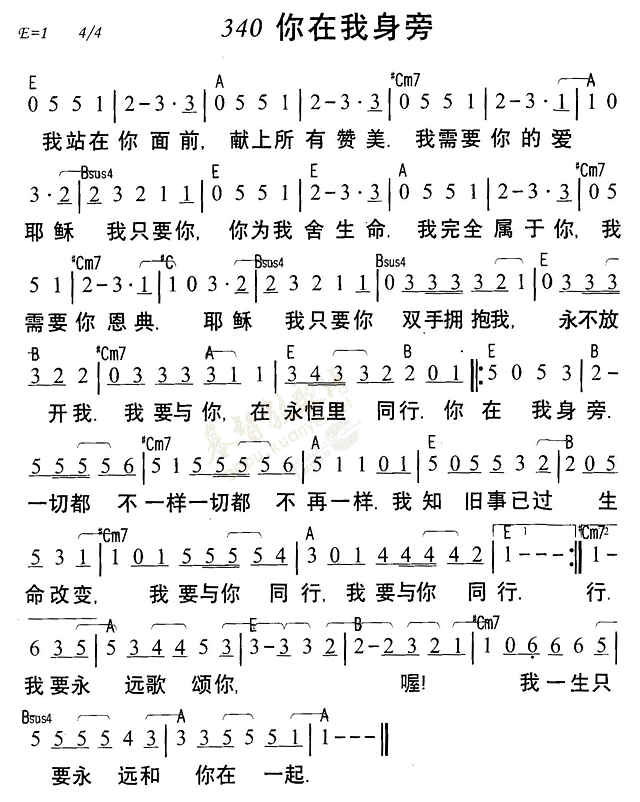 E=1 4/4 340 你在我身旁
E A #Cm7 A
0 5 5 1 | 2-3·3 | 0 5 5 1 | 2-3·3 | 0 5 5 1 | 2-3·1 | 1 0
我站在你面前, 献上所有赞美. 我需要你的爱
Bsus4 E E A #Cm7
3·2 | 2 3 2 1 1 | 0 5 5 1 | 2-3·3 | 0 5 5 1 | 2-3·3 | 0 5
耶稣 我只要你, 你为我舍生命. 我完全属于你, 我
#Cm7 #C Bsus4 Bsus4 E
5 1 | 2-3·1 | 1 0 3·2 | 2 3 2 1 1 0 | 0 3 3 3 3 2 1 | 0 3 3 3
需要你恩典. 耶稣 我只要你 双手拥抱我, 永不放
B #Cm7 A E B E B
3 2 2 | 0 3 3 3 3 1 1 | 3 4 3 3 2 2 0 1 |: 5 0 5 3 | 2-
开我. 我要与你, 在永恒里 同行. 你在 我身旁.
#Cm7 A E B
5 5 5 5 6 | 5 1 5 5 5 5 6 | 5 1 1 0 1 | 5 0 5 5 3 2 | 2 0 5
一切都 不一样一切都 不再一样. 我知 旧事已过 生
#Cm7 A E 1 #Cm7 2
5 3 1 | 1 0 1 5 5 5 5 4 | 3 0 1 4 4 4 4 2 | 1--- :| 1---
命改变, 我要与你 同行, 我要与你 同行. 行.
A E B #Cm7
6 3 5 | 5 3 4 4 5 5 | 3-3 3 2 | 2-2 3 2 1 | 1 0 6 6 6 5
我要永 远歌颂你, 喔! 我一生只
Bsus4 A A
5 5 5 5 4 3 | 3 3 5 5 5 1 | 1--- ||
要永 远和 你在 一起.